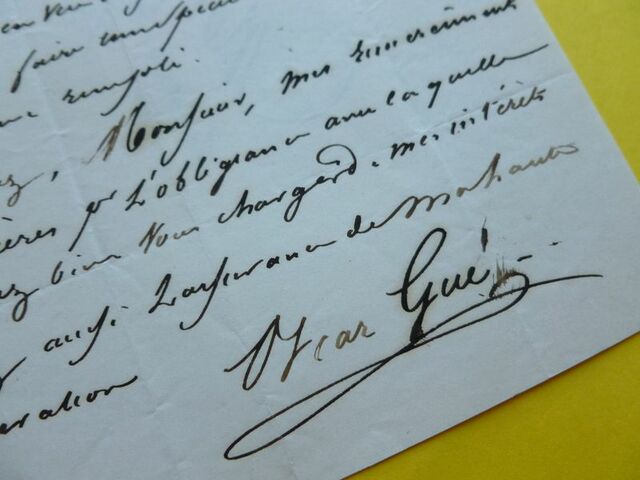 faire
rempli.
, Monsieur, mes remerciements
pr l'obligeance avec laquelle
bien vous charger de mes intérêts
aussi l'assurance de ma haute
ération
Oscar Gué